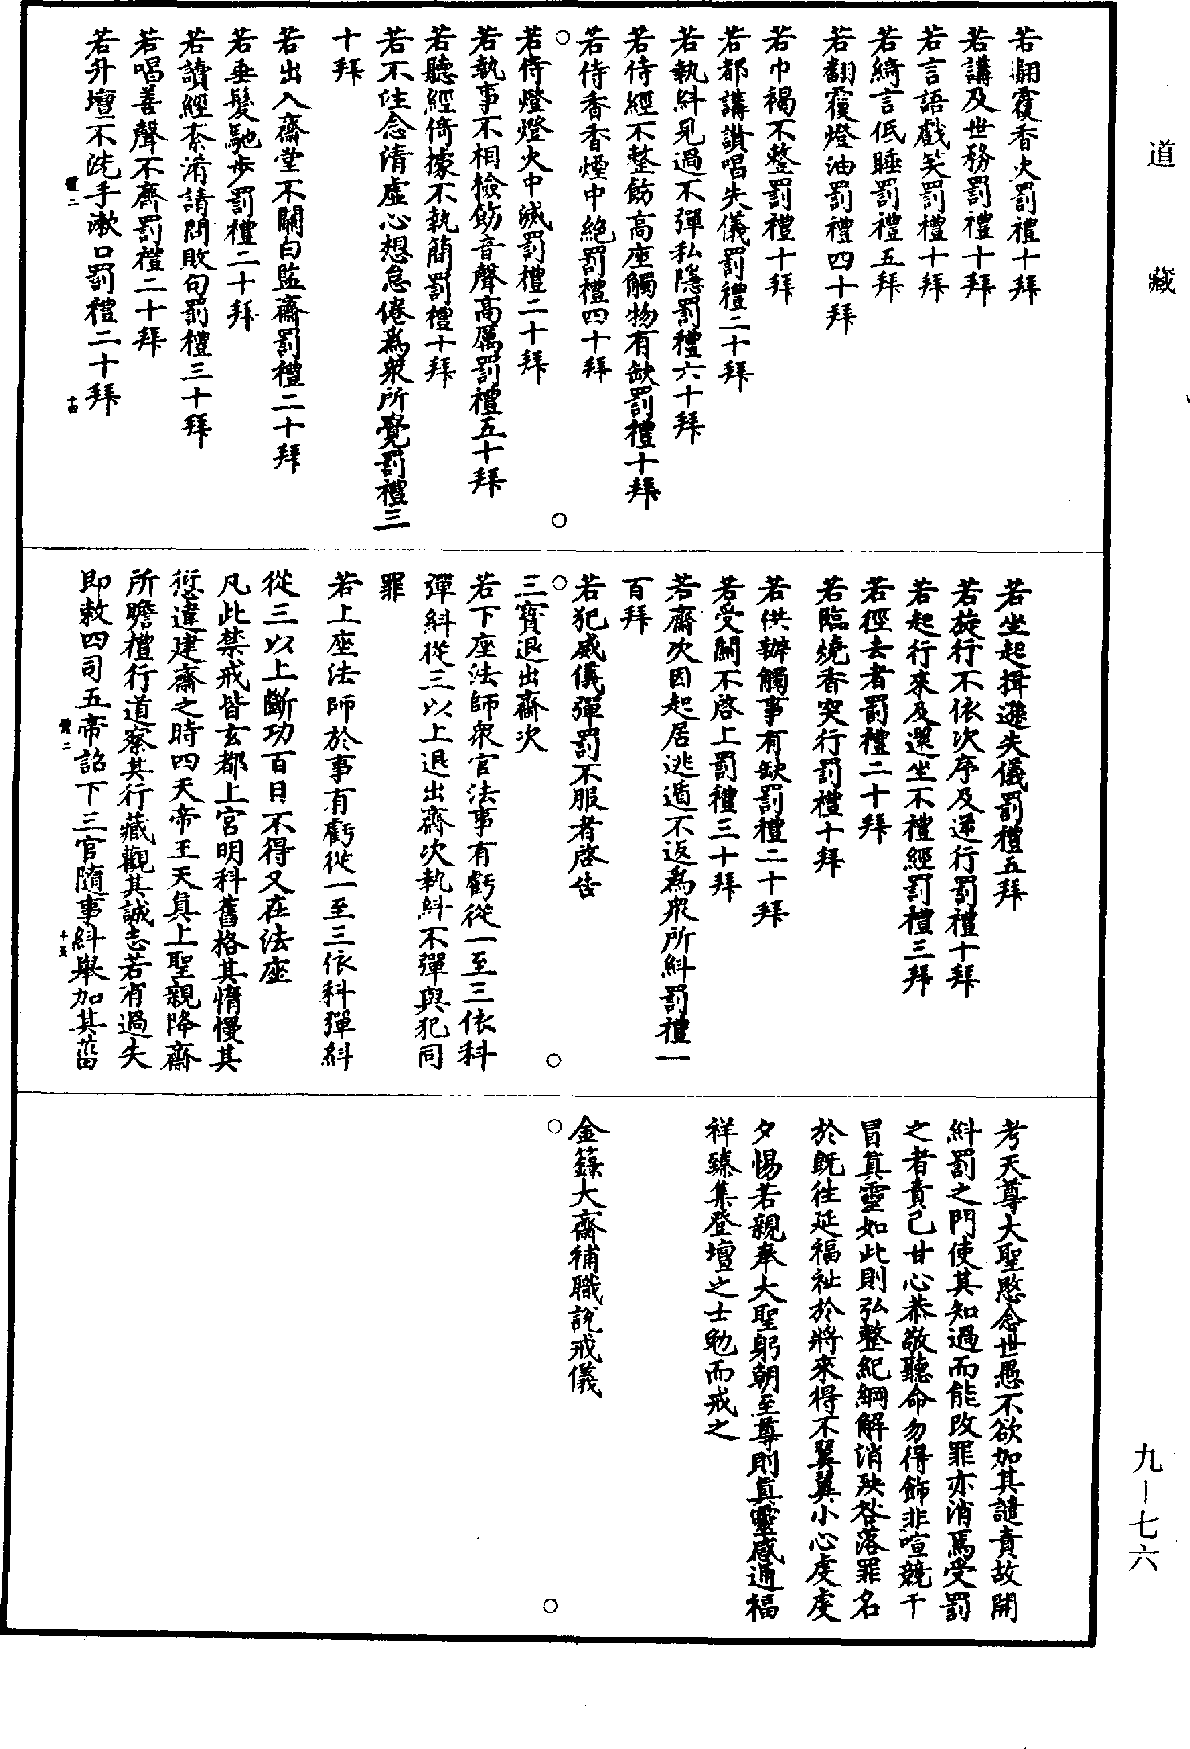 道藏
若翻覆香火罰禮十拜
若講及世務罰禮十拜
若言語戲笑罰禮十拜
若綺言低睡罰禮五拜
若翻覆燈油罰禮四十拜
若巾褐不整罰禮十拜
若都講讚唱失儀罰禮二十拜
若執糾見過不彈私隱罰禮六十拜
若侍經不整飭高座觸物有缺罰禮十拜
若侍香香煙中絕罰禮四十拜
若侍燈燈火中滅罰禮二十拜
若執事不相檢飭音聲高厲罰禮五十拜
若聽經倚據不執簡罰禮十拜
若不注念清虛心想怠倦為眾所覺罰禮三
十拜
若出入齋堂不關白監齋罰禮二十拜
若垂髮馳步罰禮二十拜
若讀經紊淆請問敗句罰禮三十拜
若唱善聲不齊罰禮二十拜
若升壇不洗手漱口罰禮二十拜
十四
若坐起揖遜失儀罰禮五拜
若旋行不依次序及逆行罰禮十拜
若起行來及還坐不禮經罰禮三拜
若徑去者罰禮二十拜
若臨燒香突行罰禮十拜
若供辦觸事有缺罰禮二十拜
若受關不啓上罰禮三十拜
若齋次因起居逃遁不返為眾所糾罰禮一
百拜
若犯威儀彈罰不服者啓告
三寶退出齋次
若下座法師眾官法事有虧從一至三依科
彈糾從三以上退出齋次執糾不彈與犯同
罪
若上座法師於事有虧從一至三依科彈糾
從三以上斷功百日不得又在法座
凡此禁戒皆玄都上宮明科舊格其惰慢其
愆違建齋之時四天帝王天真上聖親降齋
所瞻禮行道察其行藏觀其誠志若有過失
即敕四司五帝詔下三官隨事糾舉加其菑
十五
考天尊大聖愍念世愚不欲加其譴責故開
糾罰之門使其知過而能改罪亦消焉受罰
之者責己甘心恭敬聽命勿得飾非喧競干
冒真靈如此則弘整紀綱解消殃咎落罪名
於既往延福祉於將來得不翼翼小心虔虔
夕惕若親奉大聖躬朝至尊則真靈感通福
祥臻集登壇之士勉而戒之
金籙大齋補職說戒儀
九—七六